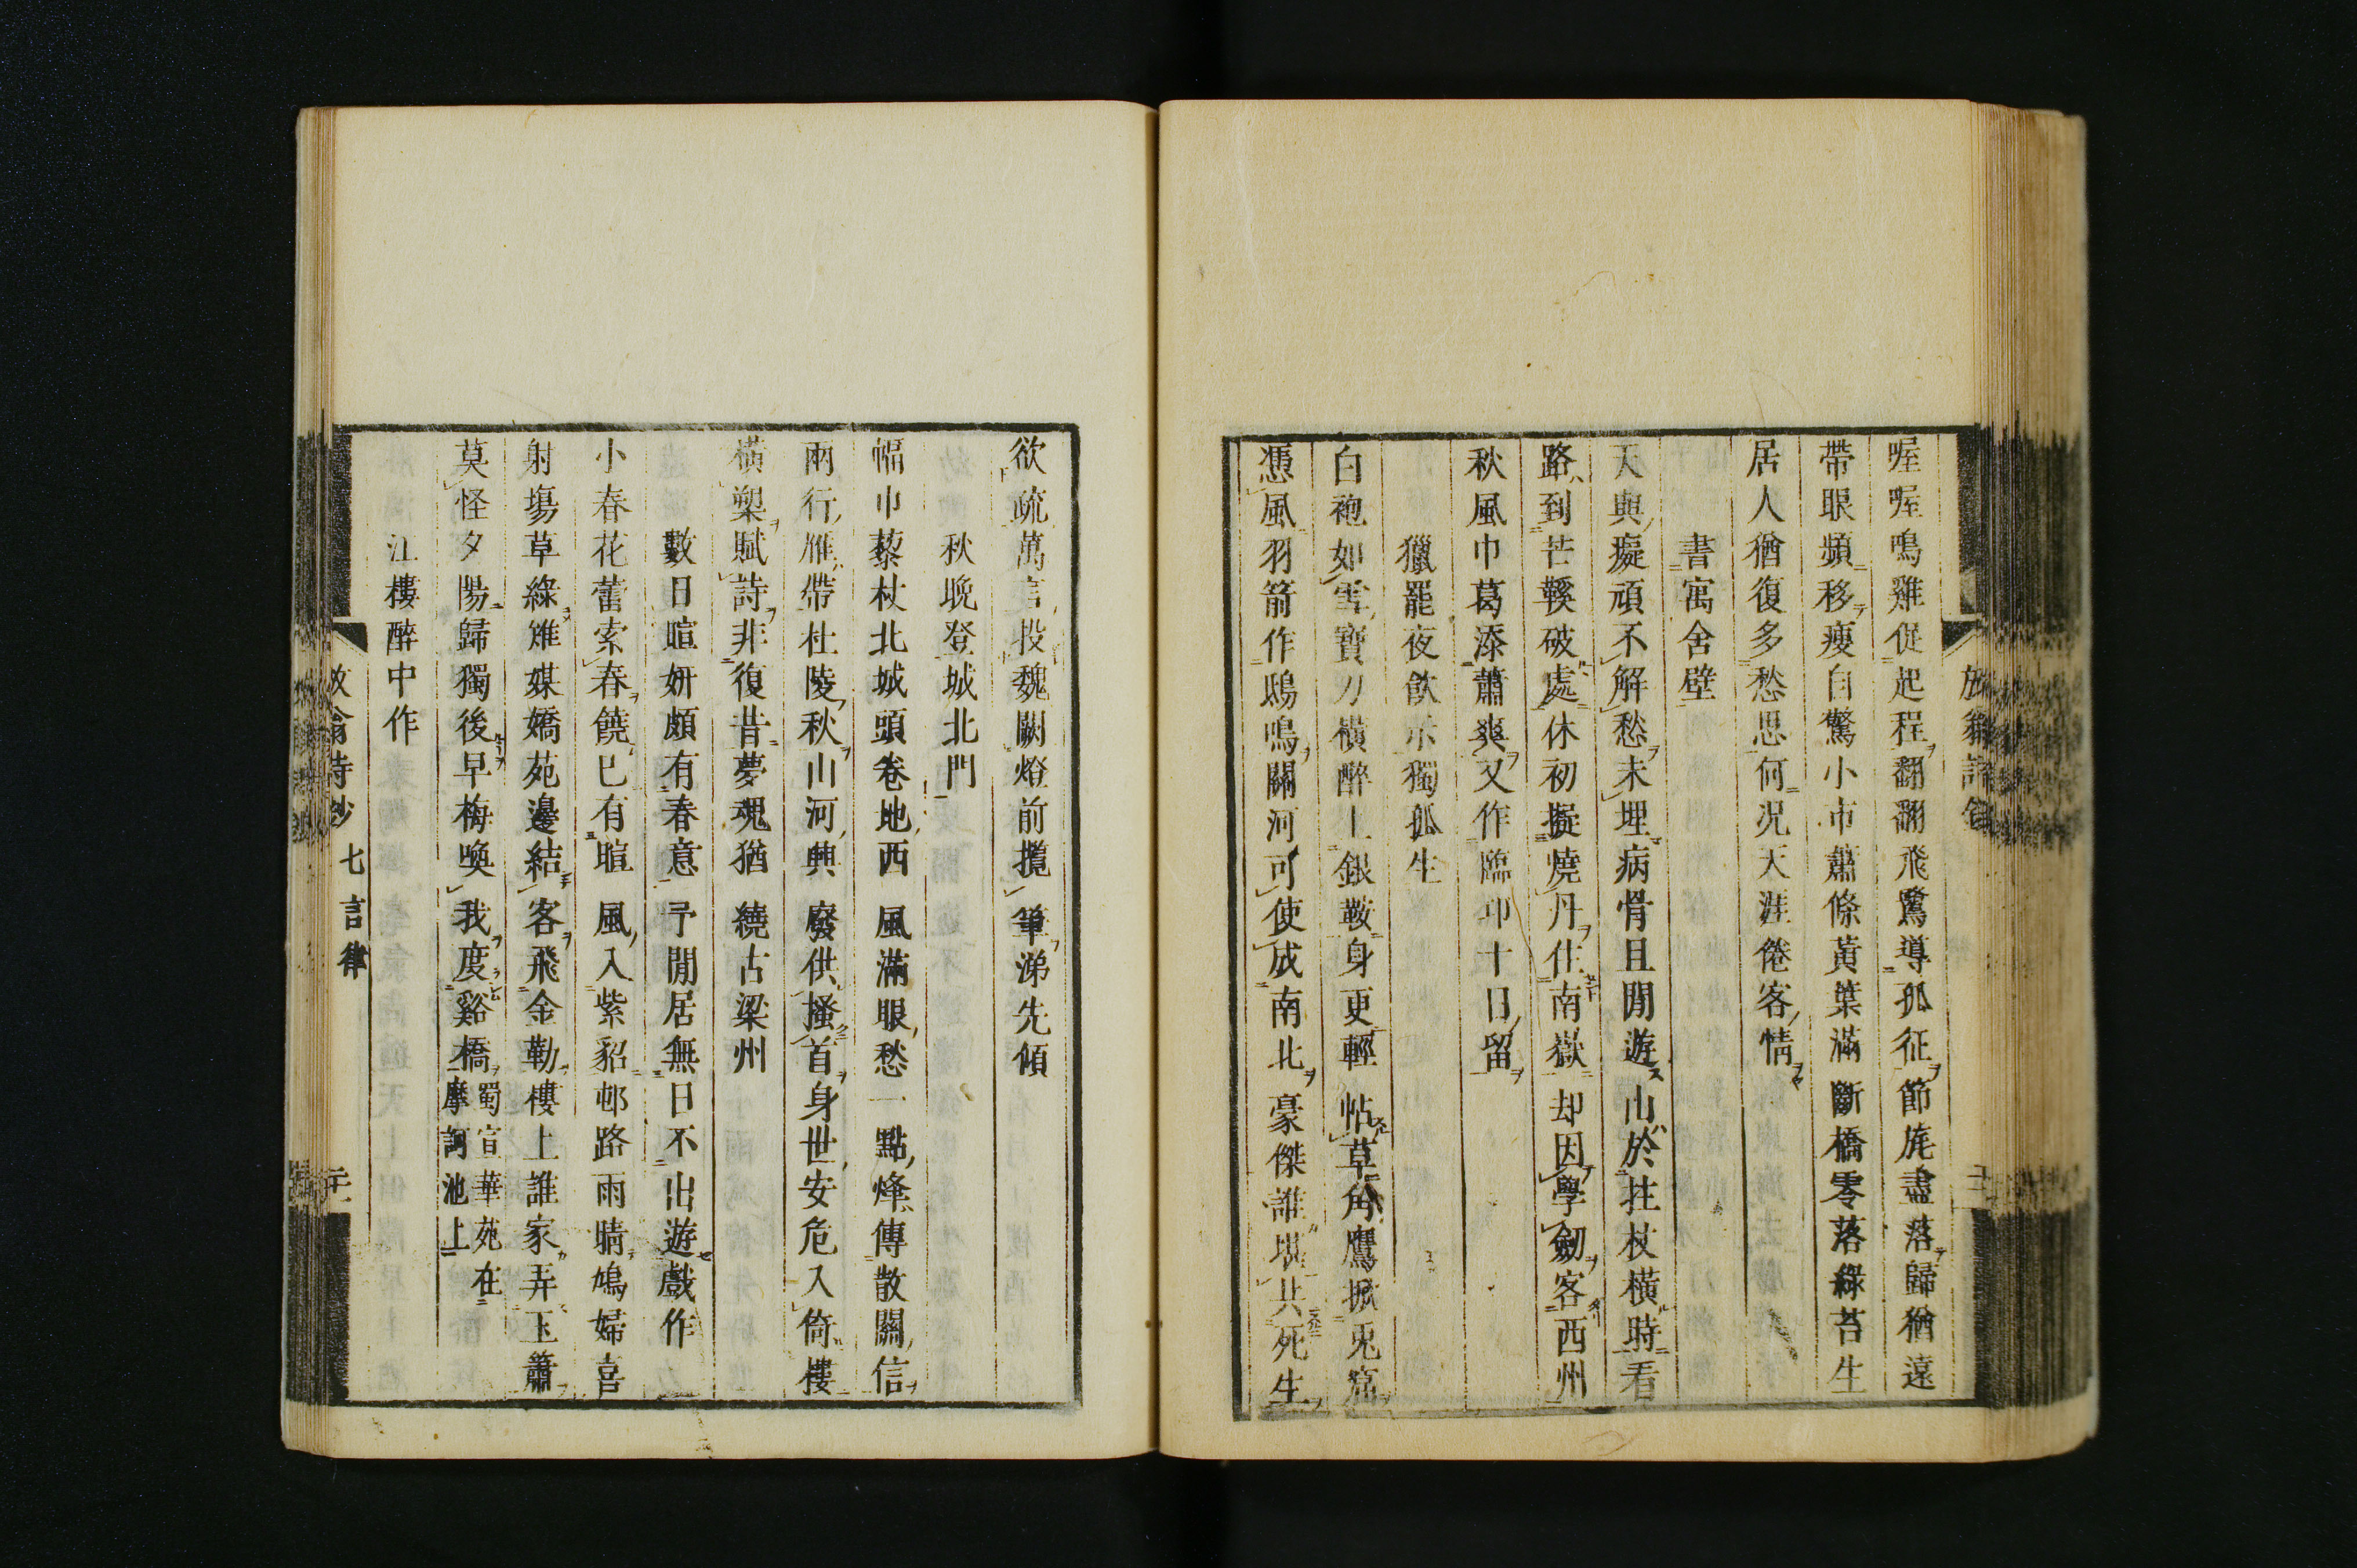 喔喔鳴雞促起程翻翻飛鷺導孤征節旄盡落歸猶遠
帶眼頻移瘦自驚小市蕭條黃葉滿斷橋零落綠苔生
居人猶復多愁思何況天涯倦客情
書寓舍壁
天與癡頑不解愁未埋病骨且閒遊山於拄杖橫時看
路到芒鞵破處休初擬燒丹住南嶽却因學劒客西州
秋風巾葛添蕭爽又作臨卭十日留
獵罷夜飲示獨孤生
白袍如雪寶刀橫醉上銀鞍身更輕帖草角鷹掀兎窟
憑風羽箭作鴟鳴關河可使成南北豪傑誰堪共死生
欲疏萬言投魏闕燈前攬筆涕先傾
秋晚登城北門
幅巾藜杖北城頭卷地西風滿眼愁一點烽傳散關信
兩行雁帶杜陵秋山河興廢供搔首身世安危入倚樓
橫槊賦詩非復昔夢魂猶繞古梁州
數日暄妍頗有春意予閒居無日不出遊戲作
小春花蕾索春饒巳有暄風入紫貂邨路雨晴鳩婦喜
射塲草綠雉媒嬌苑邊結客飛金勒樓上誰家弄玉簫
莫怪夕陽歸獨後早梅喚我度谿橋
蜀宣華苑在
摩訶池上
江樓醉中作
放翁詩鈔 七言律